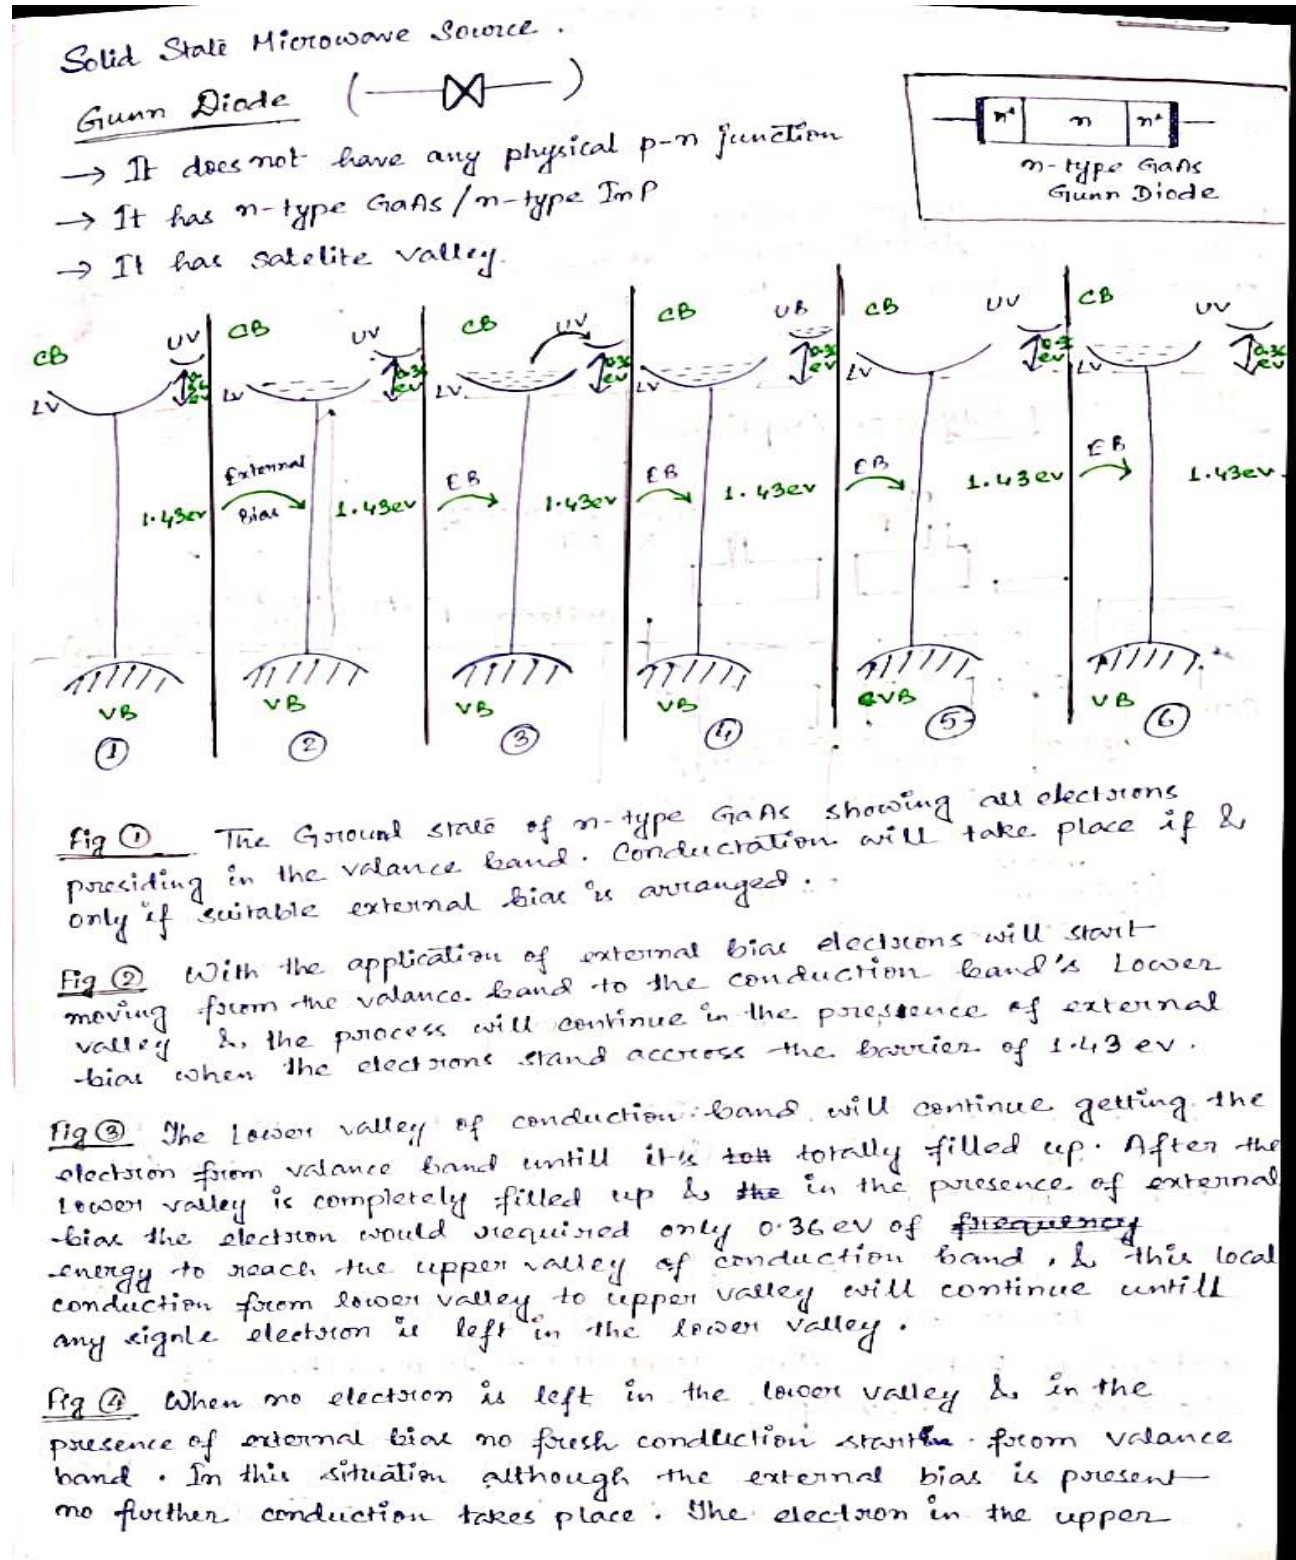 Solid State Microwave Source.
Gunn Diode ( )
n+ n n+
n-type GaAs
Gunn Diode
→ It does not have any physical p-n junction
→ It has n-type GaAs/n-type InP
→ It has satelite valley.
CB UV CB UV CB UV CB UB CB UV CB UV
LV 0.36 ev LV 0.36 ev LV 0.36 ev LV 0.36 ev LV 0.36 ev LV 0.36 ev
1.43ev External Bias 1.43ev EB 1.43ev EB 1.43ev EB 1.43ev EB 1.43ev
VB VB VB VB VB VB
1 2 3 4 5 6
Fig 1 The Ground state of n-type GaAs showing all electrons
presiding in the valance band. Conducration will take place if &
only if suitable external bias is arranged.
Fig 2 With the application of external bias electrons will start
moving from the valance band to the conduction band's Lower
valley &, the process will continue in the presence of external
bias when the electrons stand accross the barrier of 1.43 ev.
Fig 3 The Lower valley of conduction band will continue getting the
electron from valance band untill it is totally filled up. After the
Lower valley is completely filled up & the in the presence of external
bias the electron would required only 0.36 ev of frequency
energy to reach the upper valley of conduction band, & this local
conduction from lower valley to upper valley will continue untill
any signle electron is left in the lower valley.
Fig 4 When no electron is left in the lower valley & in the
presence of external bias no fresh condution start from valance
band. In this situation although the external bias is present
no further conduction takes place. The electron in the upper